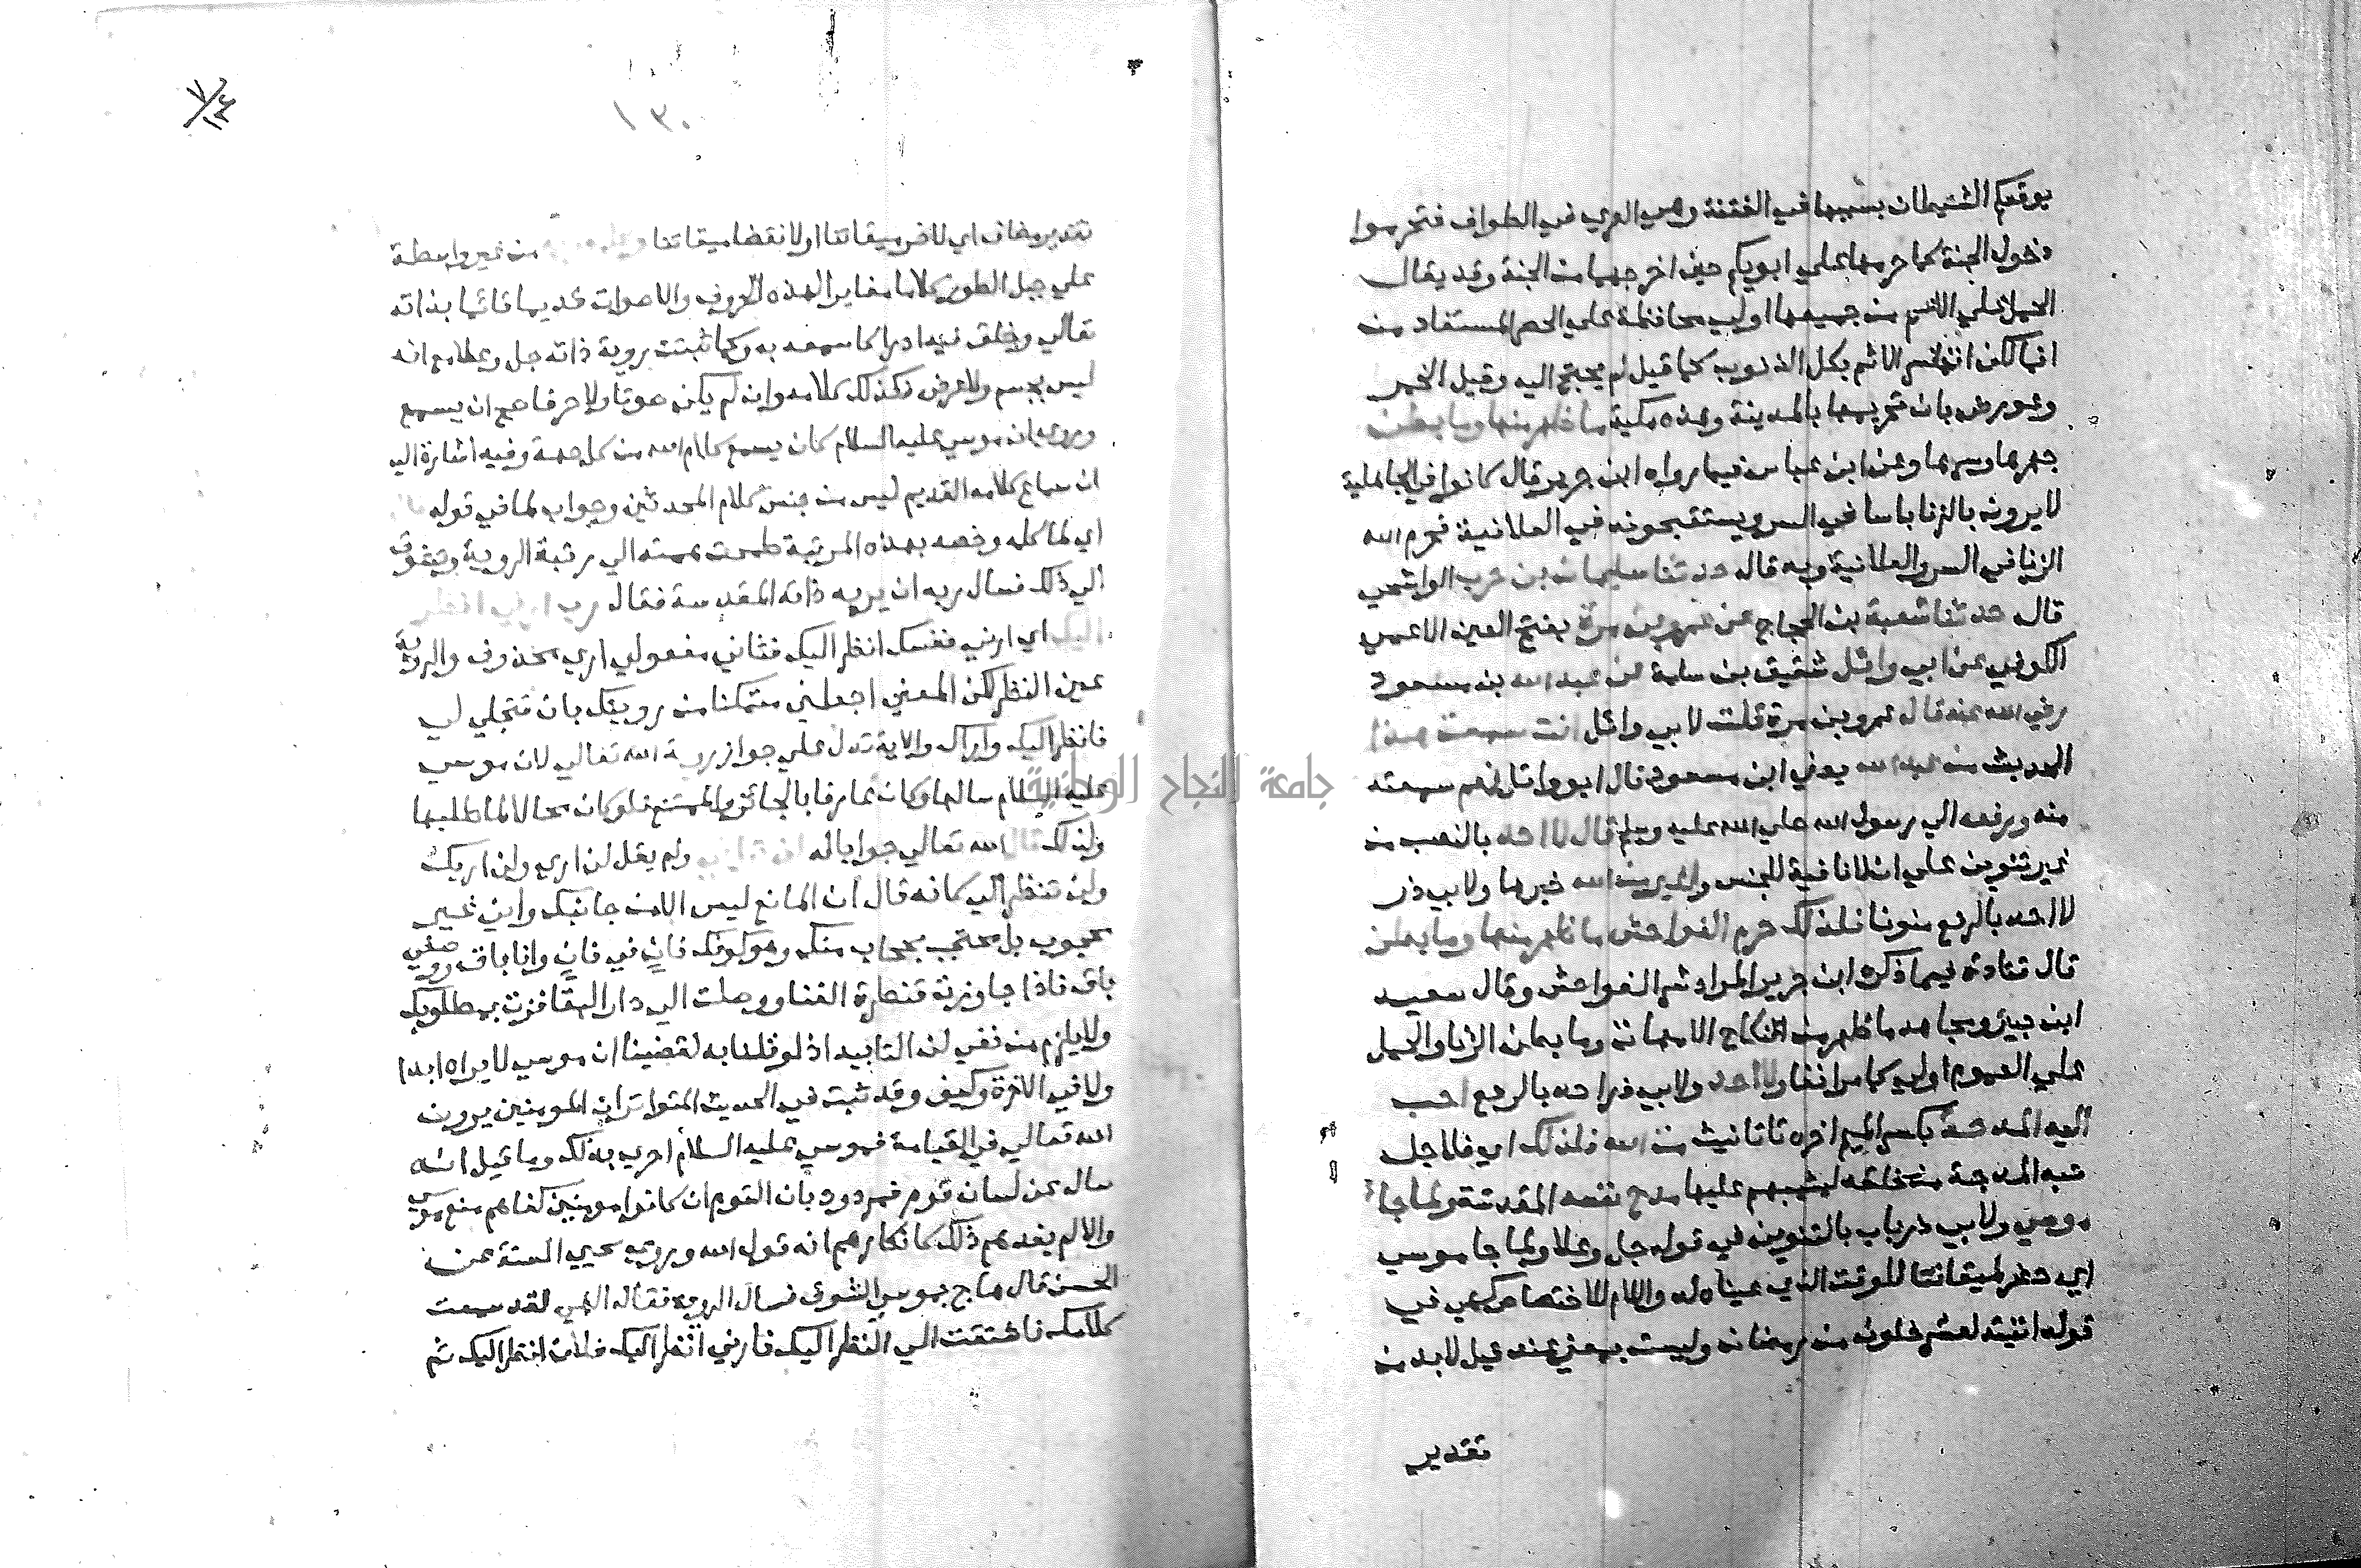 يوقعكم الشيطان بسببها في الفتنة وهي العري في الطواف فتحرموا
دخول الجنة كما حرمها على ابويكم حين اخرجهما من الجنة وقد يقال
الحمل على الاعم من جميعها اولي محافظة علي الحصر المستفاد من
انما لكن ان فسر الاثم بكل الذنوب كما قيل لم يحتج اليه وقيل الخمر
وعورض بان تحريمها بالمدينة وهذه مكية ما ظهر منها وما بطن
جهرها وسرها وعن ابن عباس فيما رواه ابن جرير قال كانوا في الجاهلية
لا يرون بالزنا باسا في السر ويستقبحونه في العلانية فحرم الله
الزنا في السر والعلانية وبه قال حدثنا سليمان بن حرب الواشحي
قال حدثنا شعبة بن الحجاج عن عمرو بن مرة بفتح العين الاعمي
الكوفي عن ابي وائل شقيق بن سلمة عن عبد الله بن مسعود
رضي الله عنه قال عمرو بن مرة قلت لابي وائل انت سمعت هذا
الحديث من عبد الله يعني ابن مسعود قال ابو وائل نعم سمعته
منه ورفعه الي رسول الله صلي الله عليه وسلم قال لا احد بالنصب من
غير تنوين علي ان لا نافية للجنس واغير من الله خبرها ولابي ذر
لا احد بالرفع منونا فلذلك حرم الفواحش ما ظهر منها وما بطن
قال قتادة فيما ذكره ابن جرير المراد سر الفواحش وقال سعيد
ابن جبير ومجاهد ما ظهر من نكاح الامهات وما بطن الزنا والحمل
علي العموم اولي كما مر انفا ولا احد ولابي ذر احد بالرفع احب
اليه المدحة بكسر الميم اخره تا تانيث من الله فلذلك اي فلاجل
حبه المدحة من خلقه ليثيبهم عليها مدح نفسه المقدسة ولما جا
موسي ولابي ذر باب بالتنوين في قوله جل وعلا ولما جا موسي
اي حضر لميقاتنا للوقت الذي عيناه له واللام للاختصاص كهي في
قوله اتيته لعشر خلون من رمضان وليست بمعني عند قيل لا بد من
تقدير
١٣٠
٧/١٣٤
تقدير مضاف اي لاخر ميقاتنا او لانقضا ميقاتنا من غير واسطة
علي جبل الطور كلاما مغايرا لهذه الحروف والاصوات قديما قائما بذاته
تعالي وخلق فيه ادراكا سمعه به وكما ثبتت روية ذاته جل وعلا مع انه
ليس بجسم ولا عرض فكذلك كلامه وان لم يكن صوتا ولا حرفا صح ان يسمع
وروي ان موسي عليه السلام كان يسمع كلام الله من كل جهة وفيه اشارة الي
ان سماع كلامه القديم ليس من جنس كلام المحدثين وجواب لما في قوله
اي لما كلمه وخصه بهذه المرتبة طمحت همته الي رتبة الروية وتشوق
الي ذلك فسال ربه ان يريه ذاته المقدسة فقال رب ارني انظر
اليك اي ارني نفسك انظر اليك فثاني مفعولي اري محذوف والروية
عين النظر لكن المعني اجعلني متمكنا من رويتك بان تتجلي لي
فانظر اليك واراك والاية تدل علي جواز روية الله تعالي لان موسي
عليه السلام سالها وكان عارفا بالجائز والممتنع فلو كان محالا لما طلبها
ولذلك قال الله تعالي جوابا له لن تراني ولم يقل لن اري ولن اريك
ولن تنظر الي كانه قال ان المانع ليس الا من جانبك واني غير
محجوب بل محتجب بحجاب منك وهو كونك فان في فان وانا باق ووصفي
باق فاذا جاوزت قنطرة الفنا ووصلت الي دار البقا فزت بمطلوبك
ولا يلزم من نفي لن التابيد اذ لو قلنا به لقضينا ان موسي لا يراه ابدا
ولا في الاخرة وكيف وقد ثبت في الحديث المتواتر ان المومنين يرون
الله تعالي في القيامة فموسي عليه السلام احري بذلك وما قيل انه
سال عن لسان قوم فمردود بان القوم ان كانوا مومنين كفاهم منع موسي
والا لم يفدهم ذلك كانكارهم انه قول الله وروي محيي السنة عن
الحسن قال هاج بموسي الشوق فسال الروية فقال الهي لقد سمعت
كلامك فاشتقت الي النظر اليك فارني انظر اليك فلان انظر اليك ثم
جامعة النجاح الوطنية